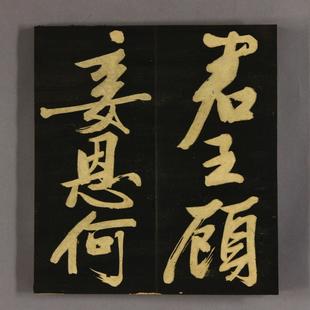 君王顾
妾恩何